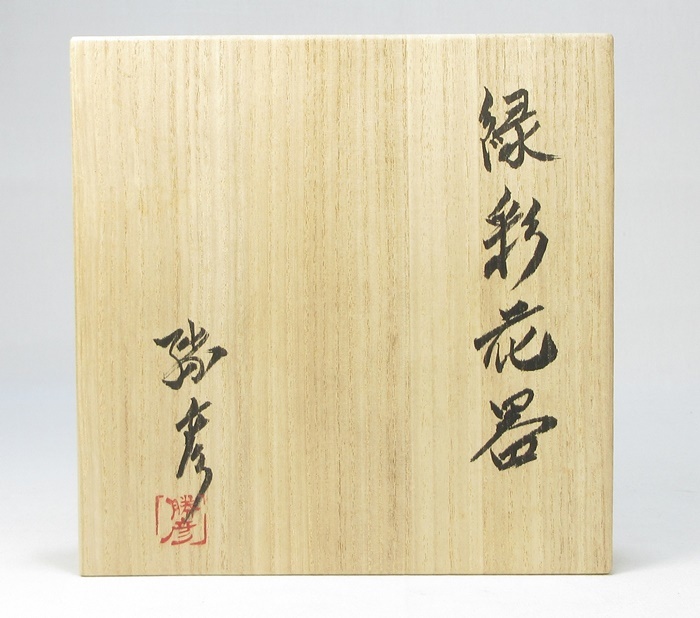 緑彩花器
勝彦
勝彦